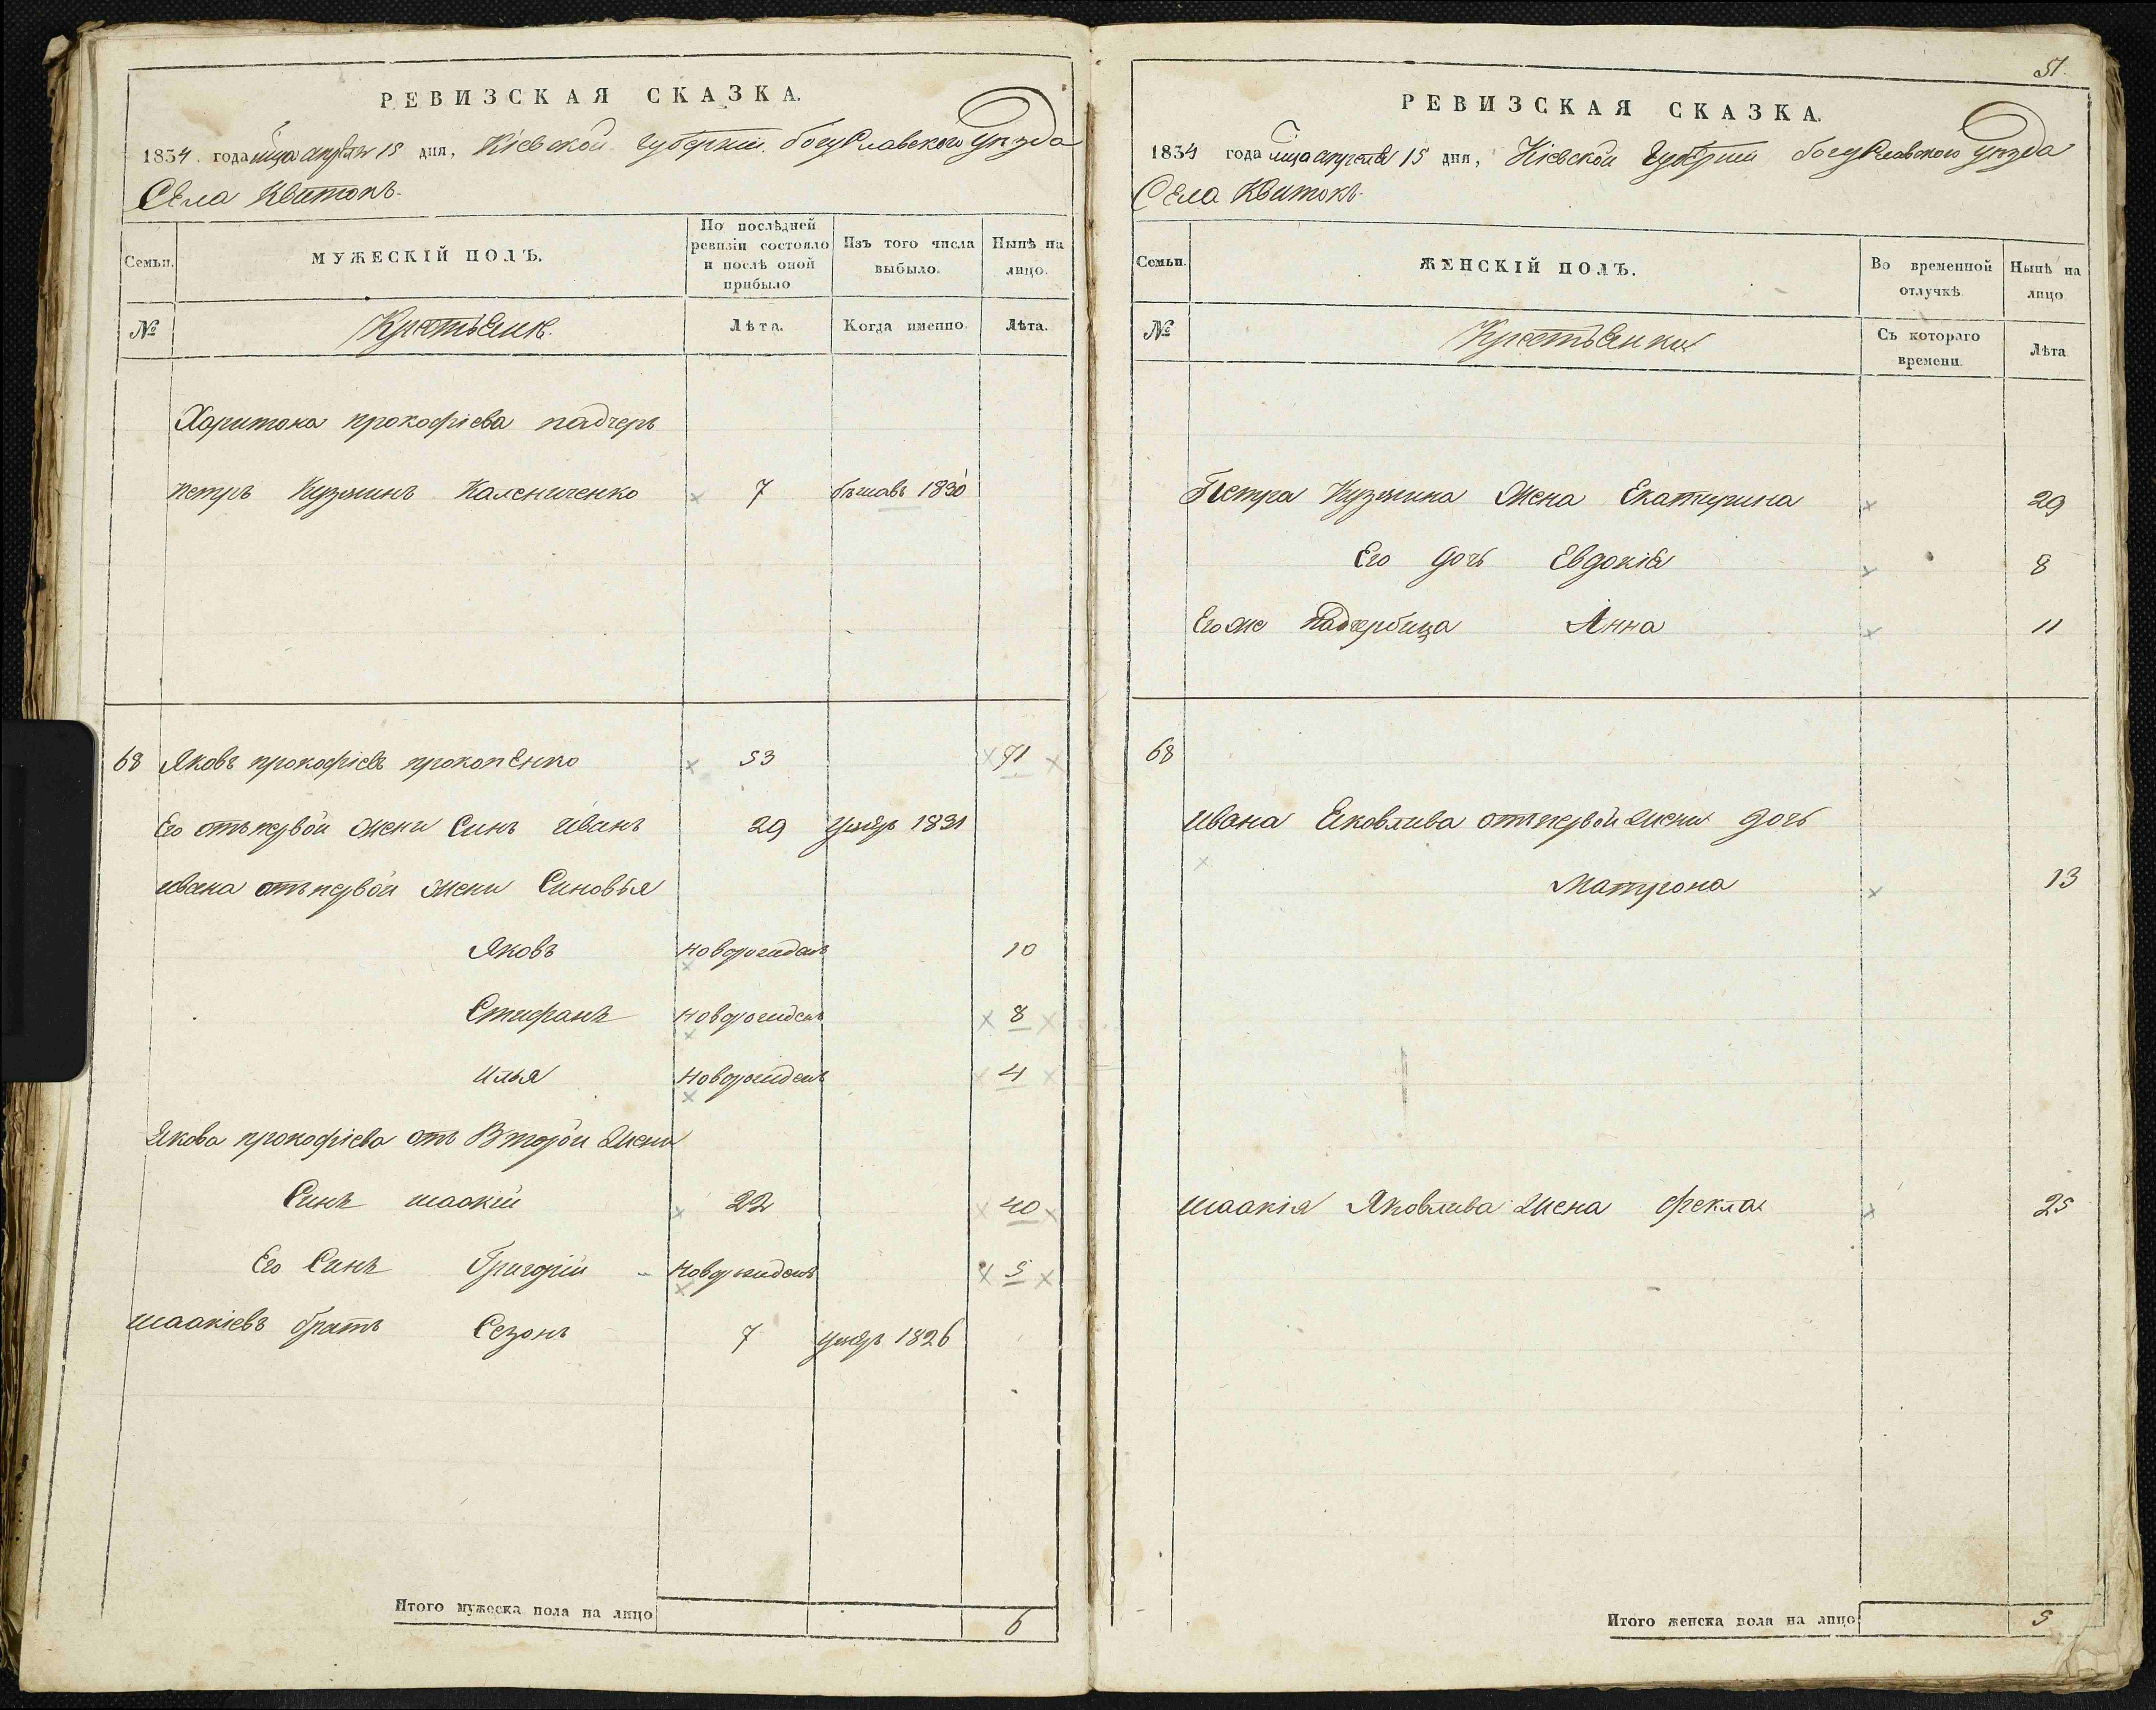 РЕВИЗСКАЯ СКАЗКА.
1834 года мца апреля 15 дня, Кіевской губерніи богуславского уезда
Села Квитокъ
Семьи. МУЖЕСКІЙ ПОЛЪ. По послѣдней ревизіи состояло и послѣ оной прибыло Изъ того числа выбыло. Нынѣ на лицо.
№ Крестьяне. Лѣта. Когда именно. Лѣта.
Харитона прокофіева падчеръ
петръ Кузминъ Калениченко 7 бѣжавъ 1830
68 Яковъ прокофіевъ прокопенко 53 71
Его отъ первой жени Синъ иванъ 29 умеръ 1831
ивана отъ первой жени Синовья
Яковъ новорожденъ 10
Стефанъ новорожденъ 8
илья новорожденъ 4
Якова прокофіева отъ Второй жени
Синъ исаакій 22 40
Его Синъ Григорій новорожденъ 5
исаакіевъ братъ Сезонъ 7 умеръ 1826
Итого мужеска пола на лицо 6
51.
РЕВИЗСКАЯ СКАЗКА.
1834 года мца апреля 15 дня, Кіевской губерніи богуславского уезда
Села Квитокъ
Семьи. ЖЕНСКІЙ ПОЛЪ. Во временной отлучкѣ. Нынѣ на лицо
№ Крестьянки Съ котораго времени. Лѣта
Петра Кузмина жена Екатерина 29
Его дочь Евдокія 8
Его же падчерница Анна 11
68
ивана Яковлива отъ первой жени дочь
Матрона 13
исаакія Яковлива жена фекла 25
Итого женска пола на лицо 5